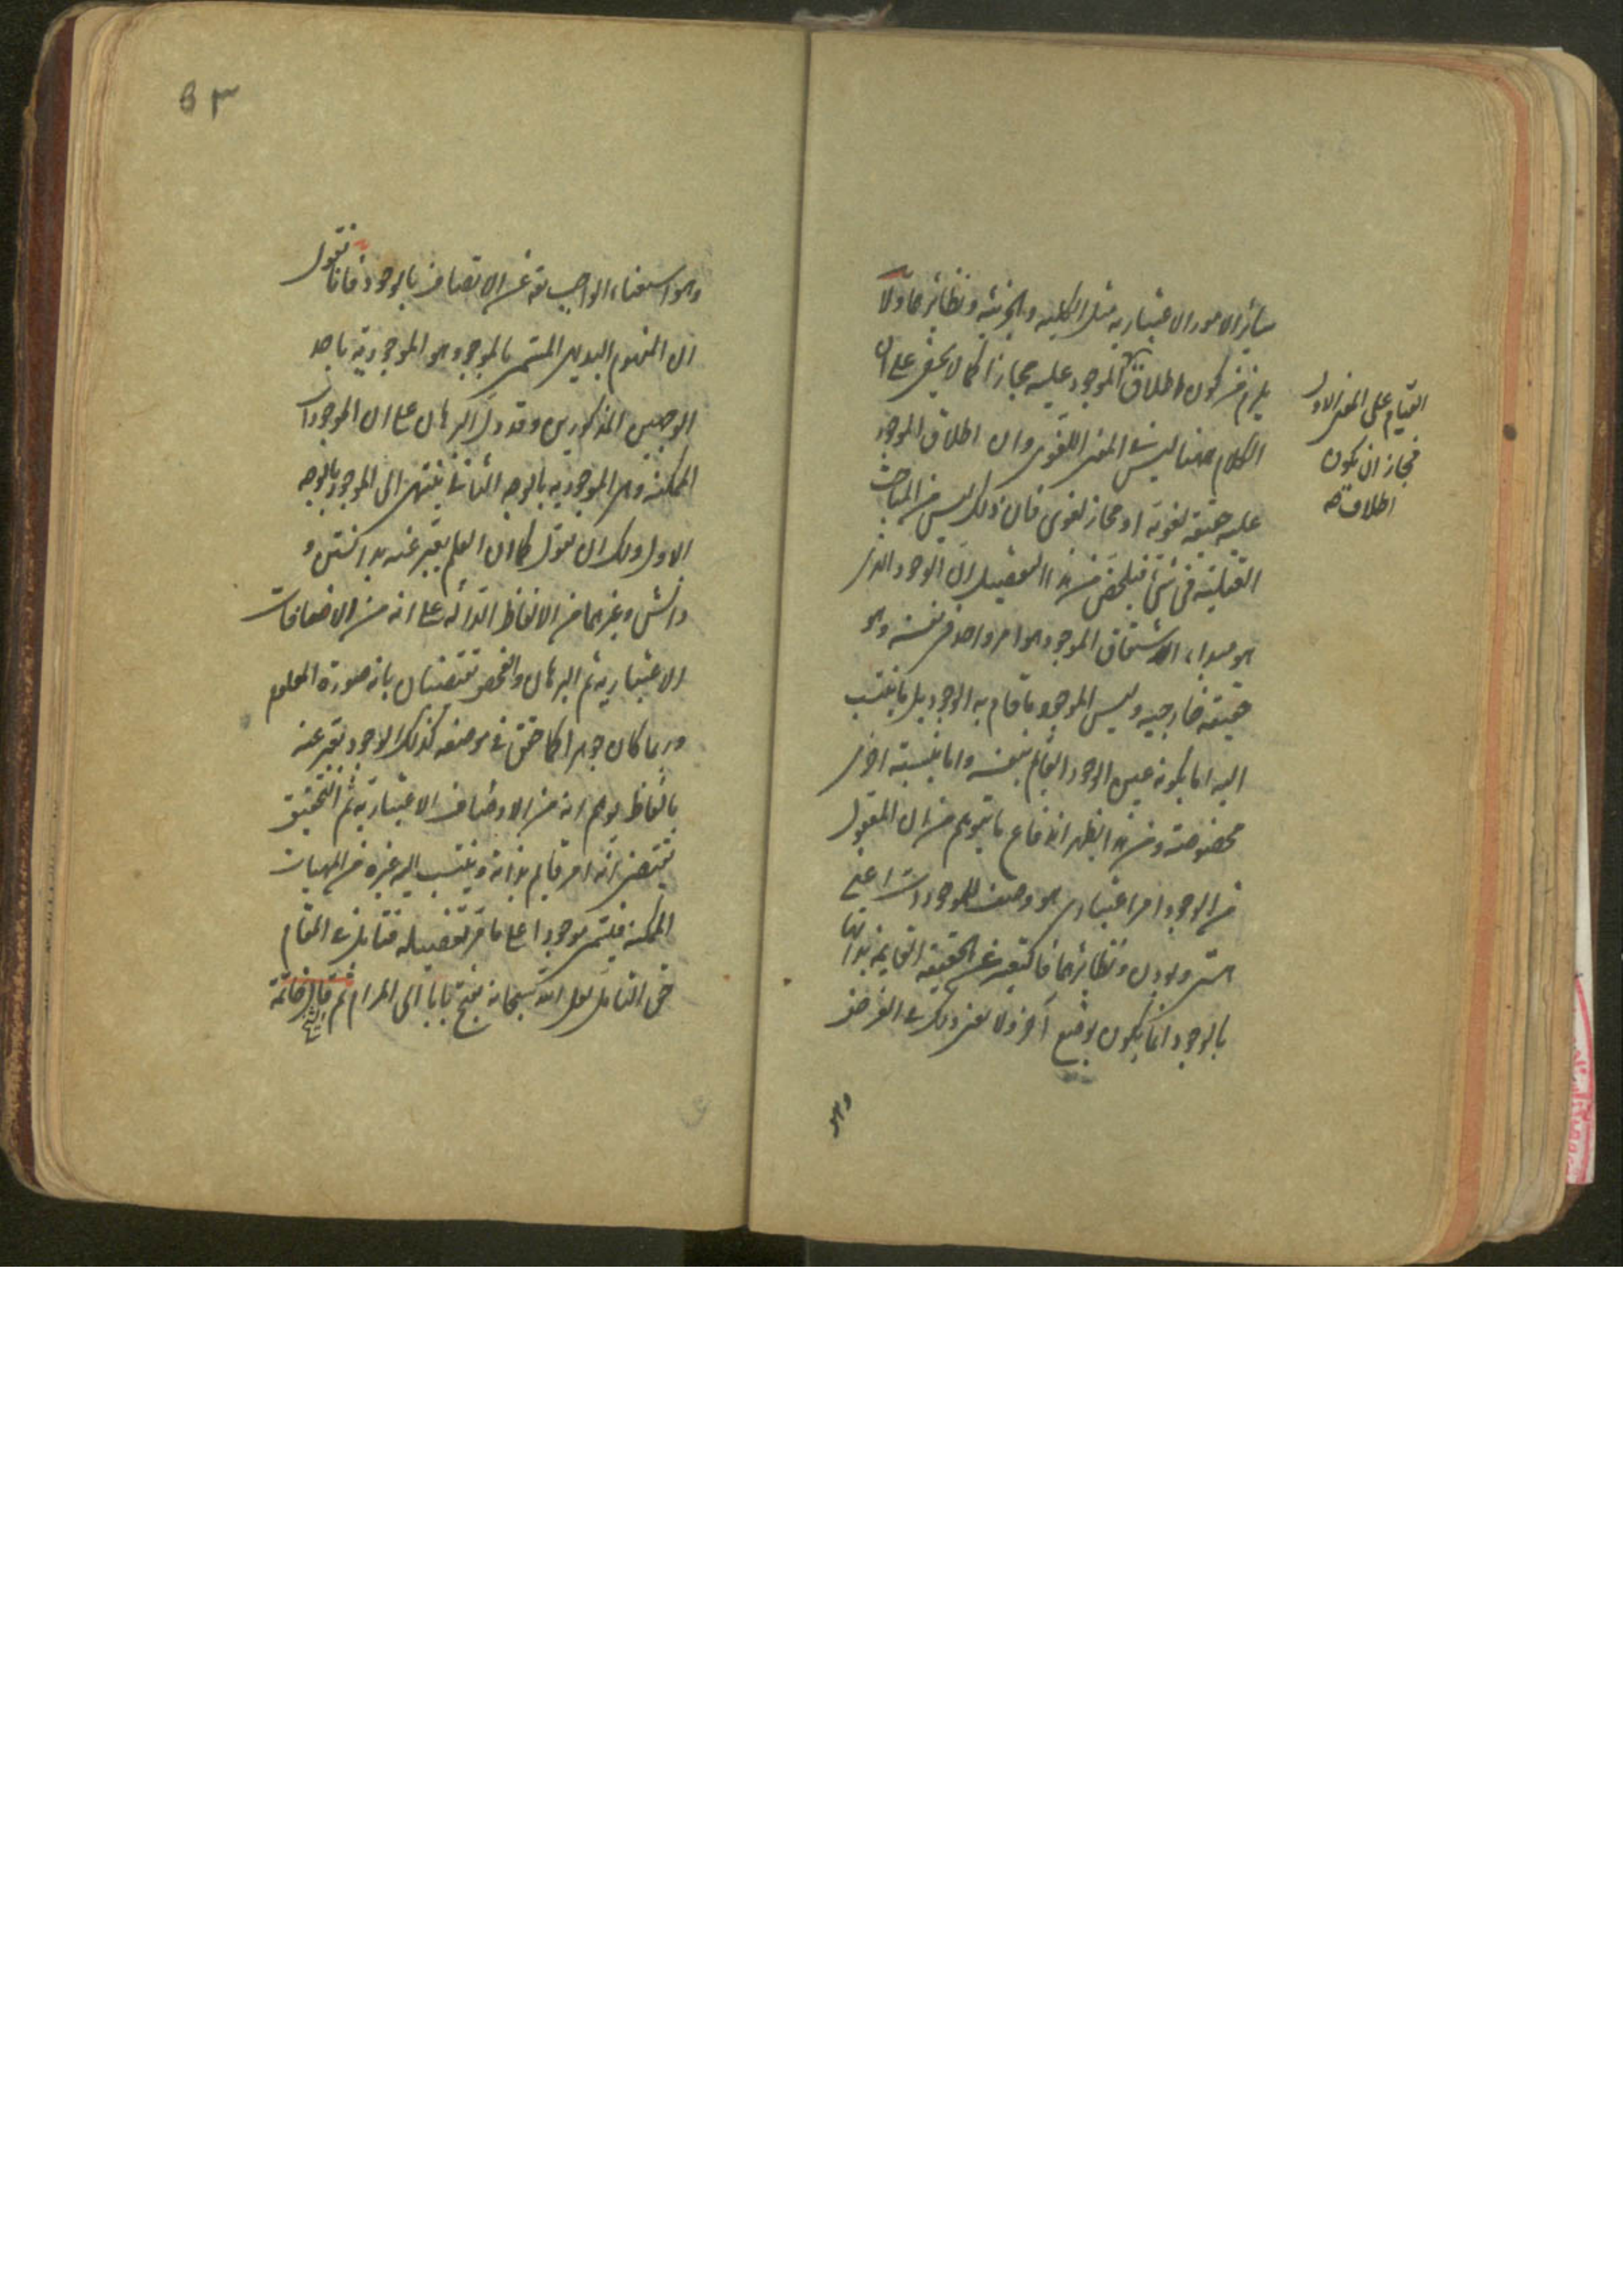 سائر الامور الاعتباريه مثل الكليه والجزئيه ونظائرهما ولا
يلزم من كون اطلاق الموجود عليه مجازا كما لا يخفى على ان
الكلام ههنا ليس فى المعنى اللغوى وان اطلاق الموجود
عليه حقيقة لغوية او مجاز لغوى فان ذلك ليس من المباحث
العقلية فى شئ فيلخص من هذا التفصيل ان الوجود الذى
هو مبداء الاشتقاق الموجود هو امر واحد فى نفسه وهو
حقيقة خارجيه وليس الموجود ما قام به الوجود بل ما ينتسب
اليه اما بكونه عين الوجود القائم بنفسه واما بنسبته اخرى
مخصوصة ومن هذا يظهر اندفاع ما يتوهم من ان المعقول
من الوجود امر اعتبارى هو وصف للموجودات اعنى
هستى وبودن ونظائرهما فالتعبير عن الحقيقه القايمة بذاتها
بالوجود انما يكون بوضع آخر ولا يغنى ذلك فى الغرض
وهو
القيام على المعنى الاول
فجاز ان يكون
اطلاقه
٥٣
وهو استغناء الواجب تع عن الاتصاف بالوجود فانا نقول
ان المفهوم البديهى المسمى بالموجود هو الموجودية باحد
الوجهين المذكورين وقد دل البرهان على ان الموجودات
الممكنة وهى الموجوديه بالوجه الثانى ينتهى الى الموجود بالوجه
الاول ولك ان تقول كما ان العلم يعبر عنه بدانستن و
دانش وغيرهما من الالفاظ الدالة على انه من الاضافات
الاعتباريه ثم البرهان والفحص يقتضيان بانه صورة المعلوم
وربما كان جوهرا كما حقق فى موضعه كذلك الوجود يعبر عنه
بالفاظ يوهم انه من الاوصاف الاعتباريه ثم التحقيق
يقتضى انه امر قايم بذاته وينتسب اليه غيره من المهيات
الممكنه فيسمى موجودا على ما مر تفصيله فتامل فى المقام
حق التامل لعل الله سبحانه يفتح بابا الى المرام ثم قال الشيخ خاتمة